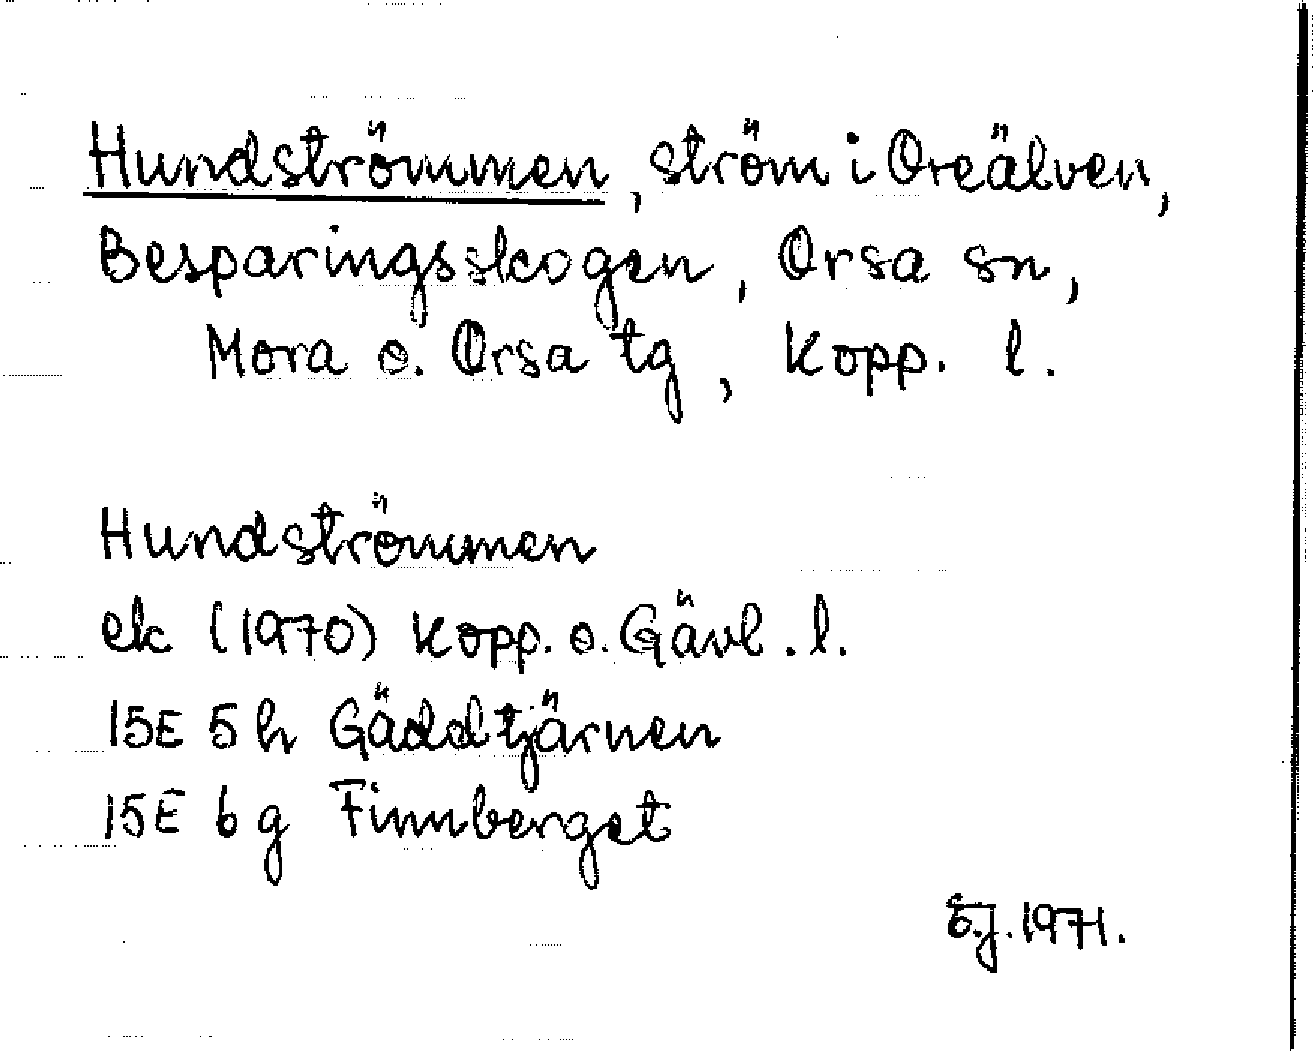 Hundströmmen, ström i Oreälven,
Besparingsskogen, Orsa sn,
Mora o. Orsa tg, Kopp. l.
Hundströmmen
ek (1970) Kopp. o. Gävl. l.
15E 5h Gäddtjärnen
15E 6g Finnberget
S.J. 1971.